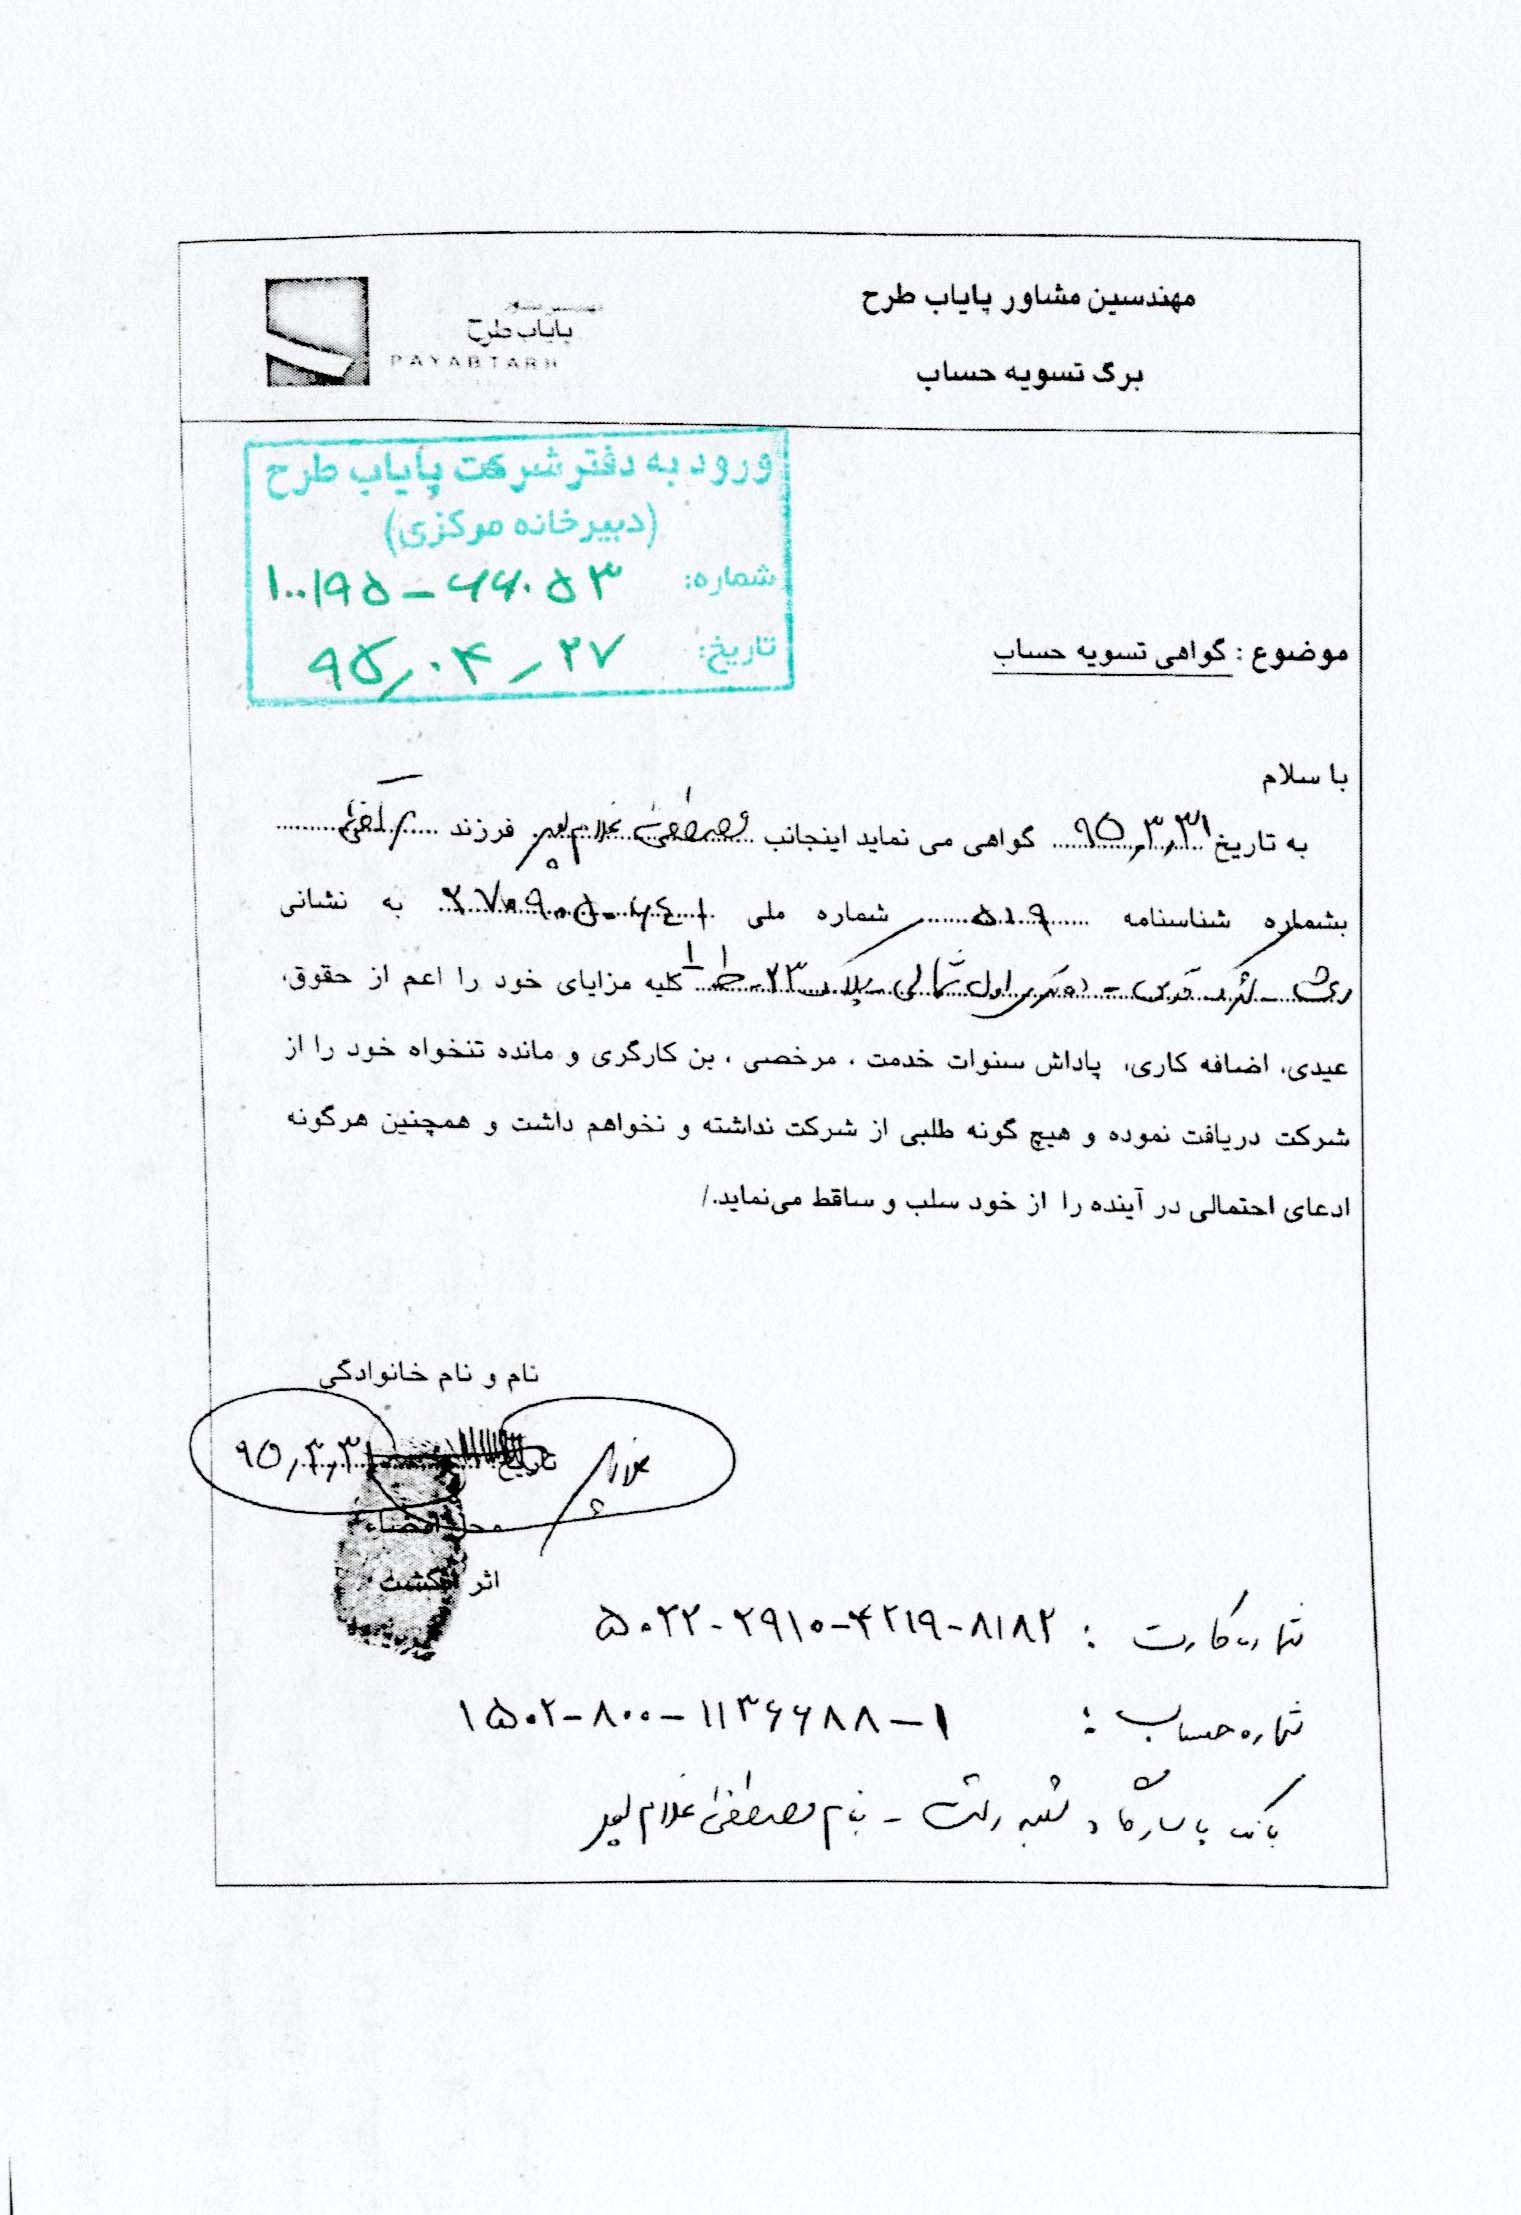 مهندسین مشاور پایاب طرح
برگ تسویه حساب
مهندسین مشاور
پایاب طرح
PAYABTARH
ورود به دفتر شرکت پایاب طرح
(دبیرخانه مرکزی)
شماره: ۱۰۰/۹۵-۶۶۰۵۳
تاریخ: ۹۵,۰۴,۲۷
موضوع : گواهی تسویه حساب
با سلام
به تاریخ ۹۵,۳,۳۱ گواهی می نماید اینجانب مصطفی غلام پور فرزند
بشماره شناسنامه ۵۱۹ شماره ملی به نشانی
رشت - - اول شمالی - پلاک ۲۳ - ط ۱ کلیه مزایای خود را اعم از حقوق،
عیدی، اضافه کاری، پاداش سنوات خدمت ، مرخصی ، بن کارگری و مانده تنخواه خود را از
شرکت دریافت نموده و هیچ گونه طلبی از شرکت نداشته و نخواهم داشت و همچنین هرگونه
ادعای احتمالی در آینده را از خود سلب و ساقط می‌نماید./
نام و نام خانوادگی
تاریخ ۹۵,۳,۳۱
محل امضاء
اثر انگشت
شماره کارت : ۵۰۲۲-۲۹۱۰-۴۲۱۹-۸۱۸۲
شماره حساب : ۱۵۰۲-۸۰۰-۱۱۳۶۶۸۸-۱
بانک پاسارگاد شعبه رشت - بنام مصطفی غلام پور